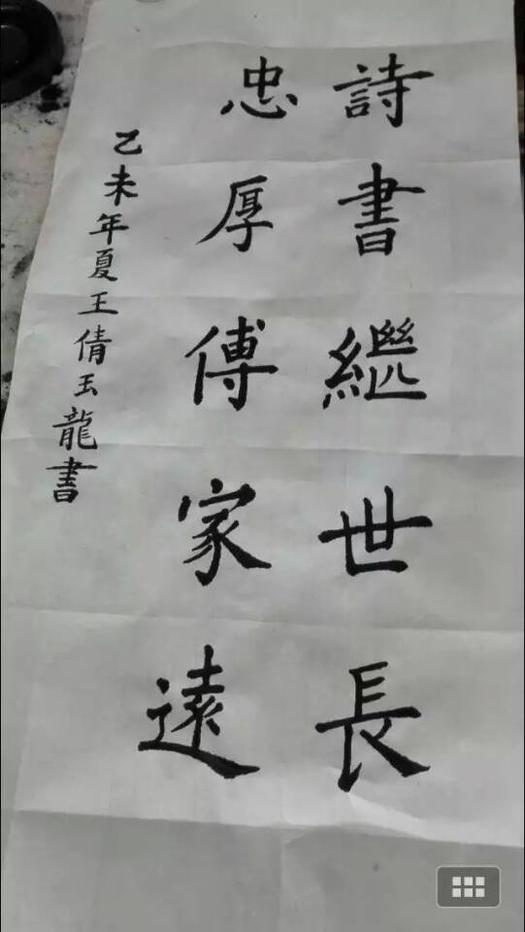 詩書繼世長
忠厚傅家遠
乙未年夏王倩玉龍書